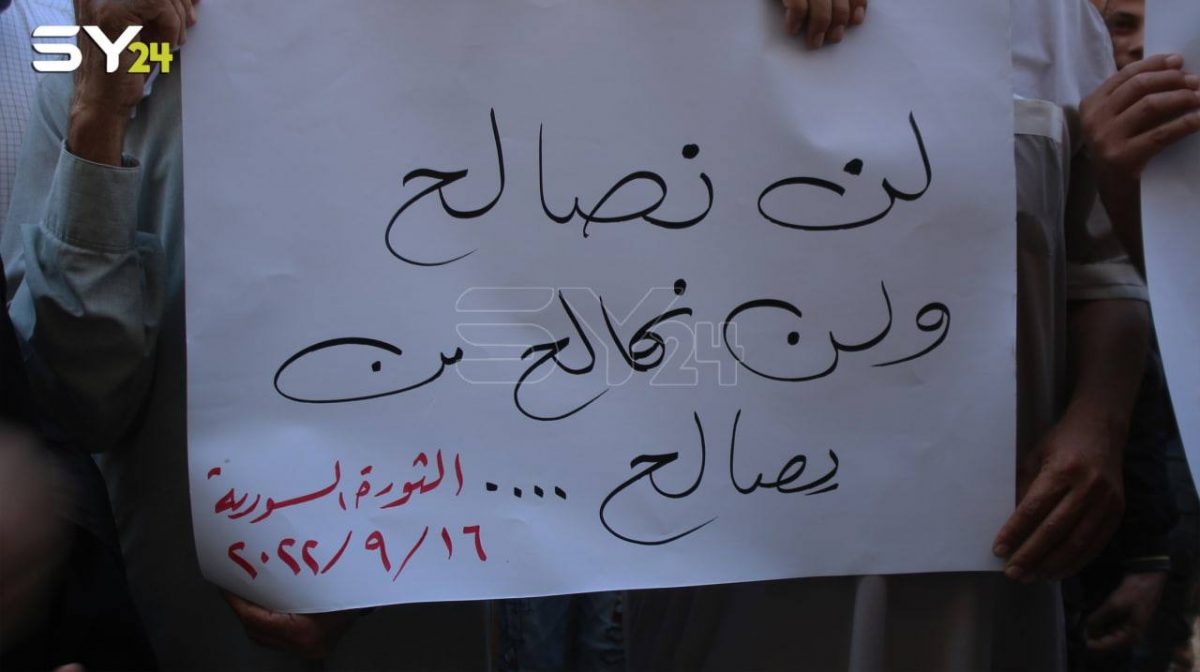 SY24
لن نصالح
ولن من
يصالح .... الثورة السورية
١٦/٩/٢٠٢٢
SY24